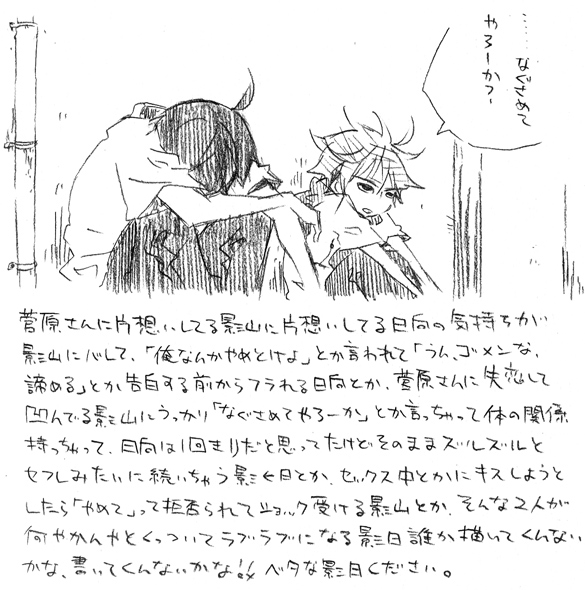 ……なぐさめて
やろーか？
菅原さんに片想いしてる影山に片想いしてる日向の気持ちが
影山にバレて、「俺なんかやめとけよ」とか言われて「うん、ゴメンな、
諦める」とか告白する前からフラれる日向とか、菅原さんに失恋して
凹んでる影山にうっかり「なぐさめてやろーか」とか言っちゃって体の関係
持っちゃって、日向は1回きりだと思ってたけどそのままズルズルと
セフレみたいに続いちゃう影日とか、セックス中とかにキスしようと
したら「やめて」って拒否られてショック受ける影山とか、そんな2人が
何やかんやとくっついてラブラブになる影日誰か描いてくんない
かな、書いてくんないかな!! ベタな影日ください。